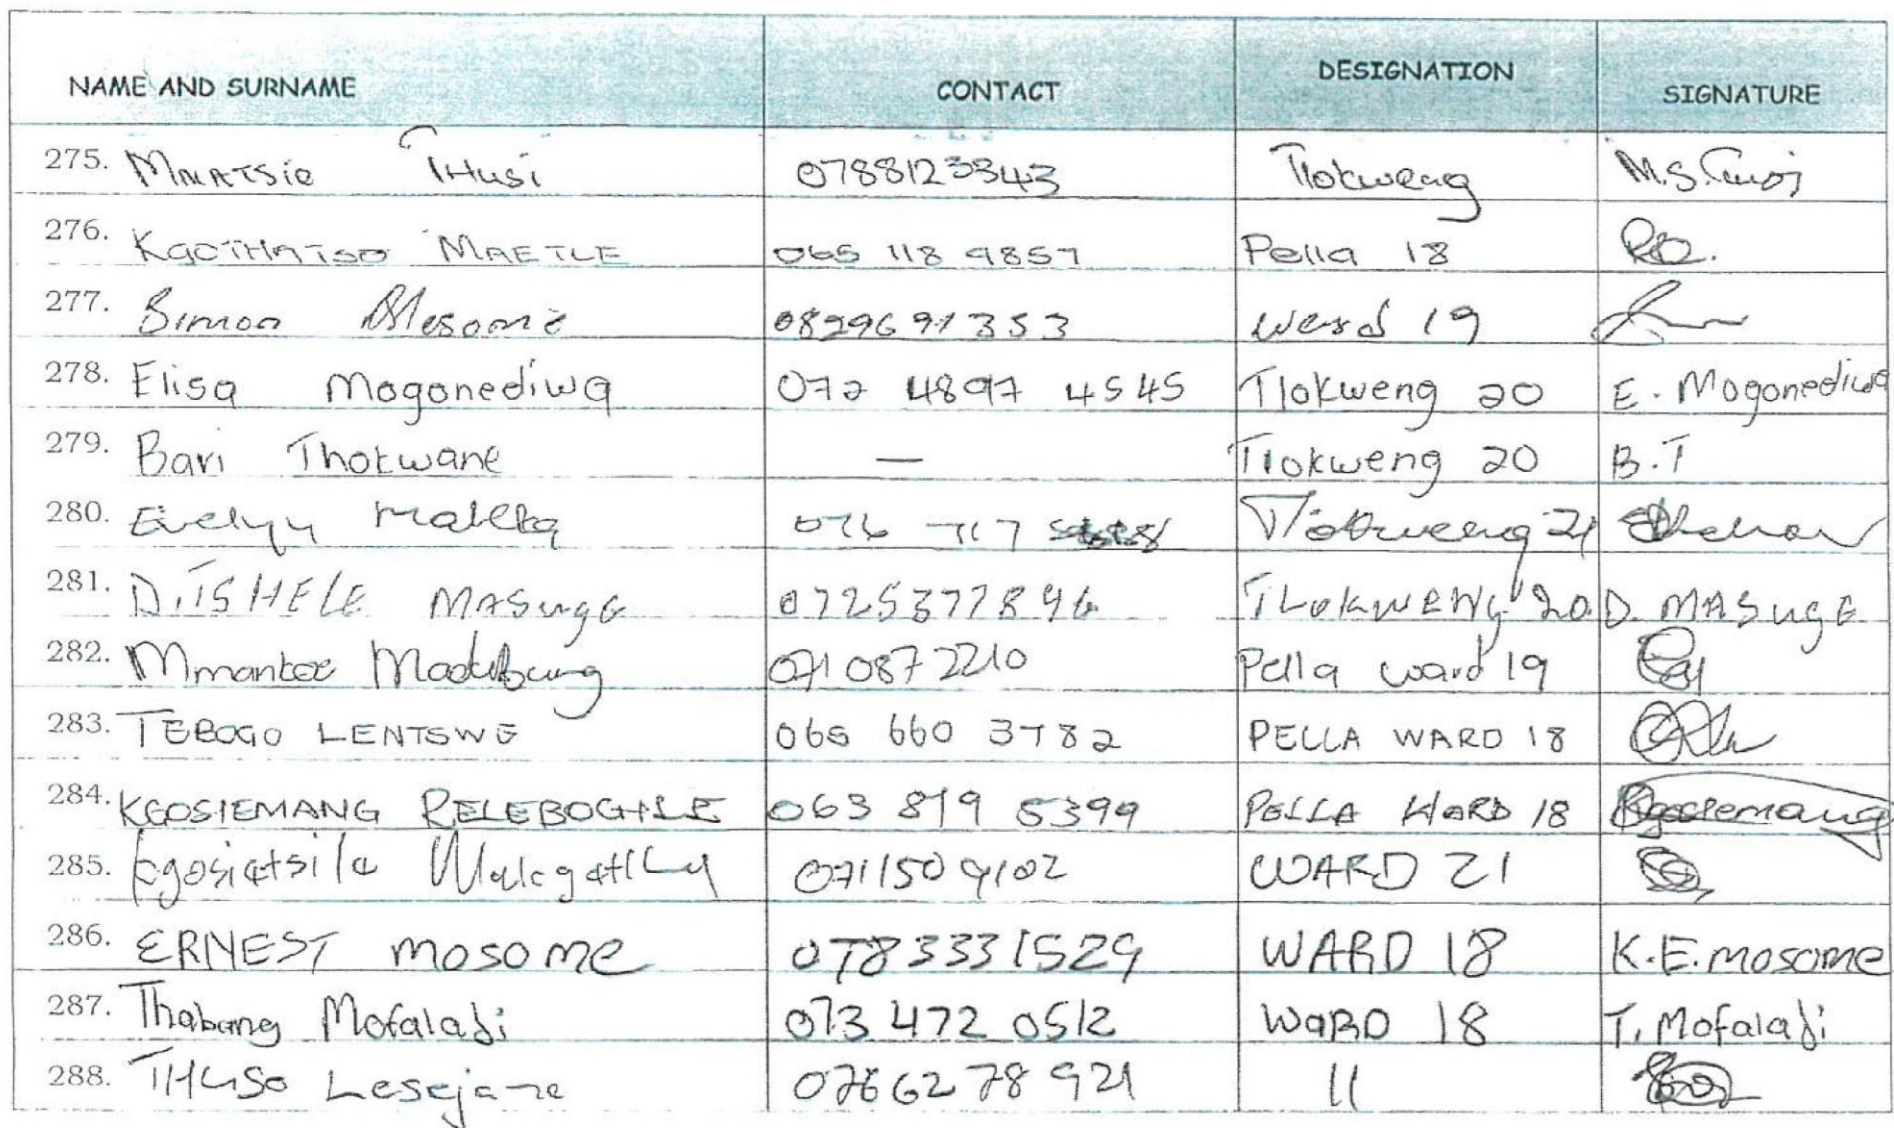 NAME AND SURNAME CONTACT DESIGNATION SIGNATURE
275. MMATSIE THUSI 0788123343 Tlokweng M.S.
276. KGOTHATSO MAETLE 065 118 9857 Pella 18
277. Simon Mesome 0829691353 Ward 19
278. Elisa Mogonediwa 072 4897 4545 Tlokweng 20 E. Mogonediwa
279. Bari Thokwane — Tlokweng 20 B.T
280. Evelyn 076 717 Tlokweng 21
281. DITSHELE MASUGE 0725377896 TLOKWENG 20 D. MASUGE
282. Mmantoe 071 087 2210 Pella ward 19
283. TEBOGO LENTSWE 066 660 3782 PELLA WARD 18
284. KGOSIEMANG RELEBOGILE 063 819 5399 PELLA WARD 18 Kgosiemang
285. Kgosietsile 0711509102 WARD 21
286. ERNEST MOSOME 0783331529 WARD 18 K.E.MOSOME
287. Thabang Mofaladi 073 472 0512 WARD 18 T. Mofaladi
288. THUSO Lesejane 0766278921 11